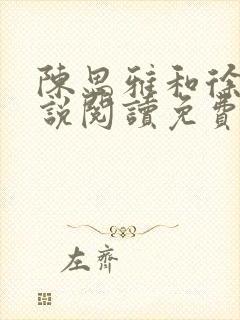 陳思雅和徐
說閱讀免費
左齊